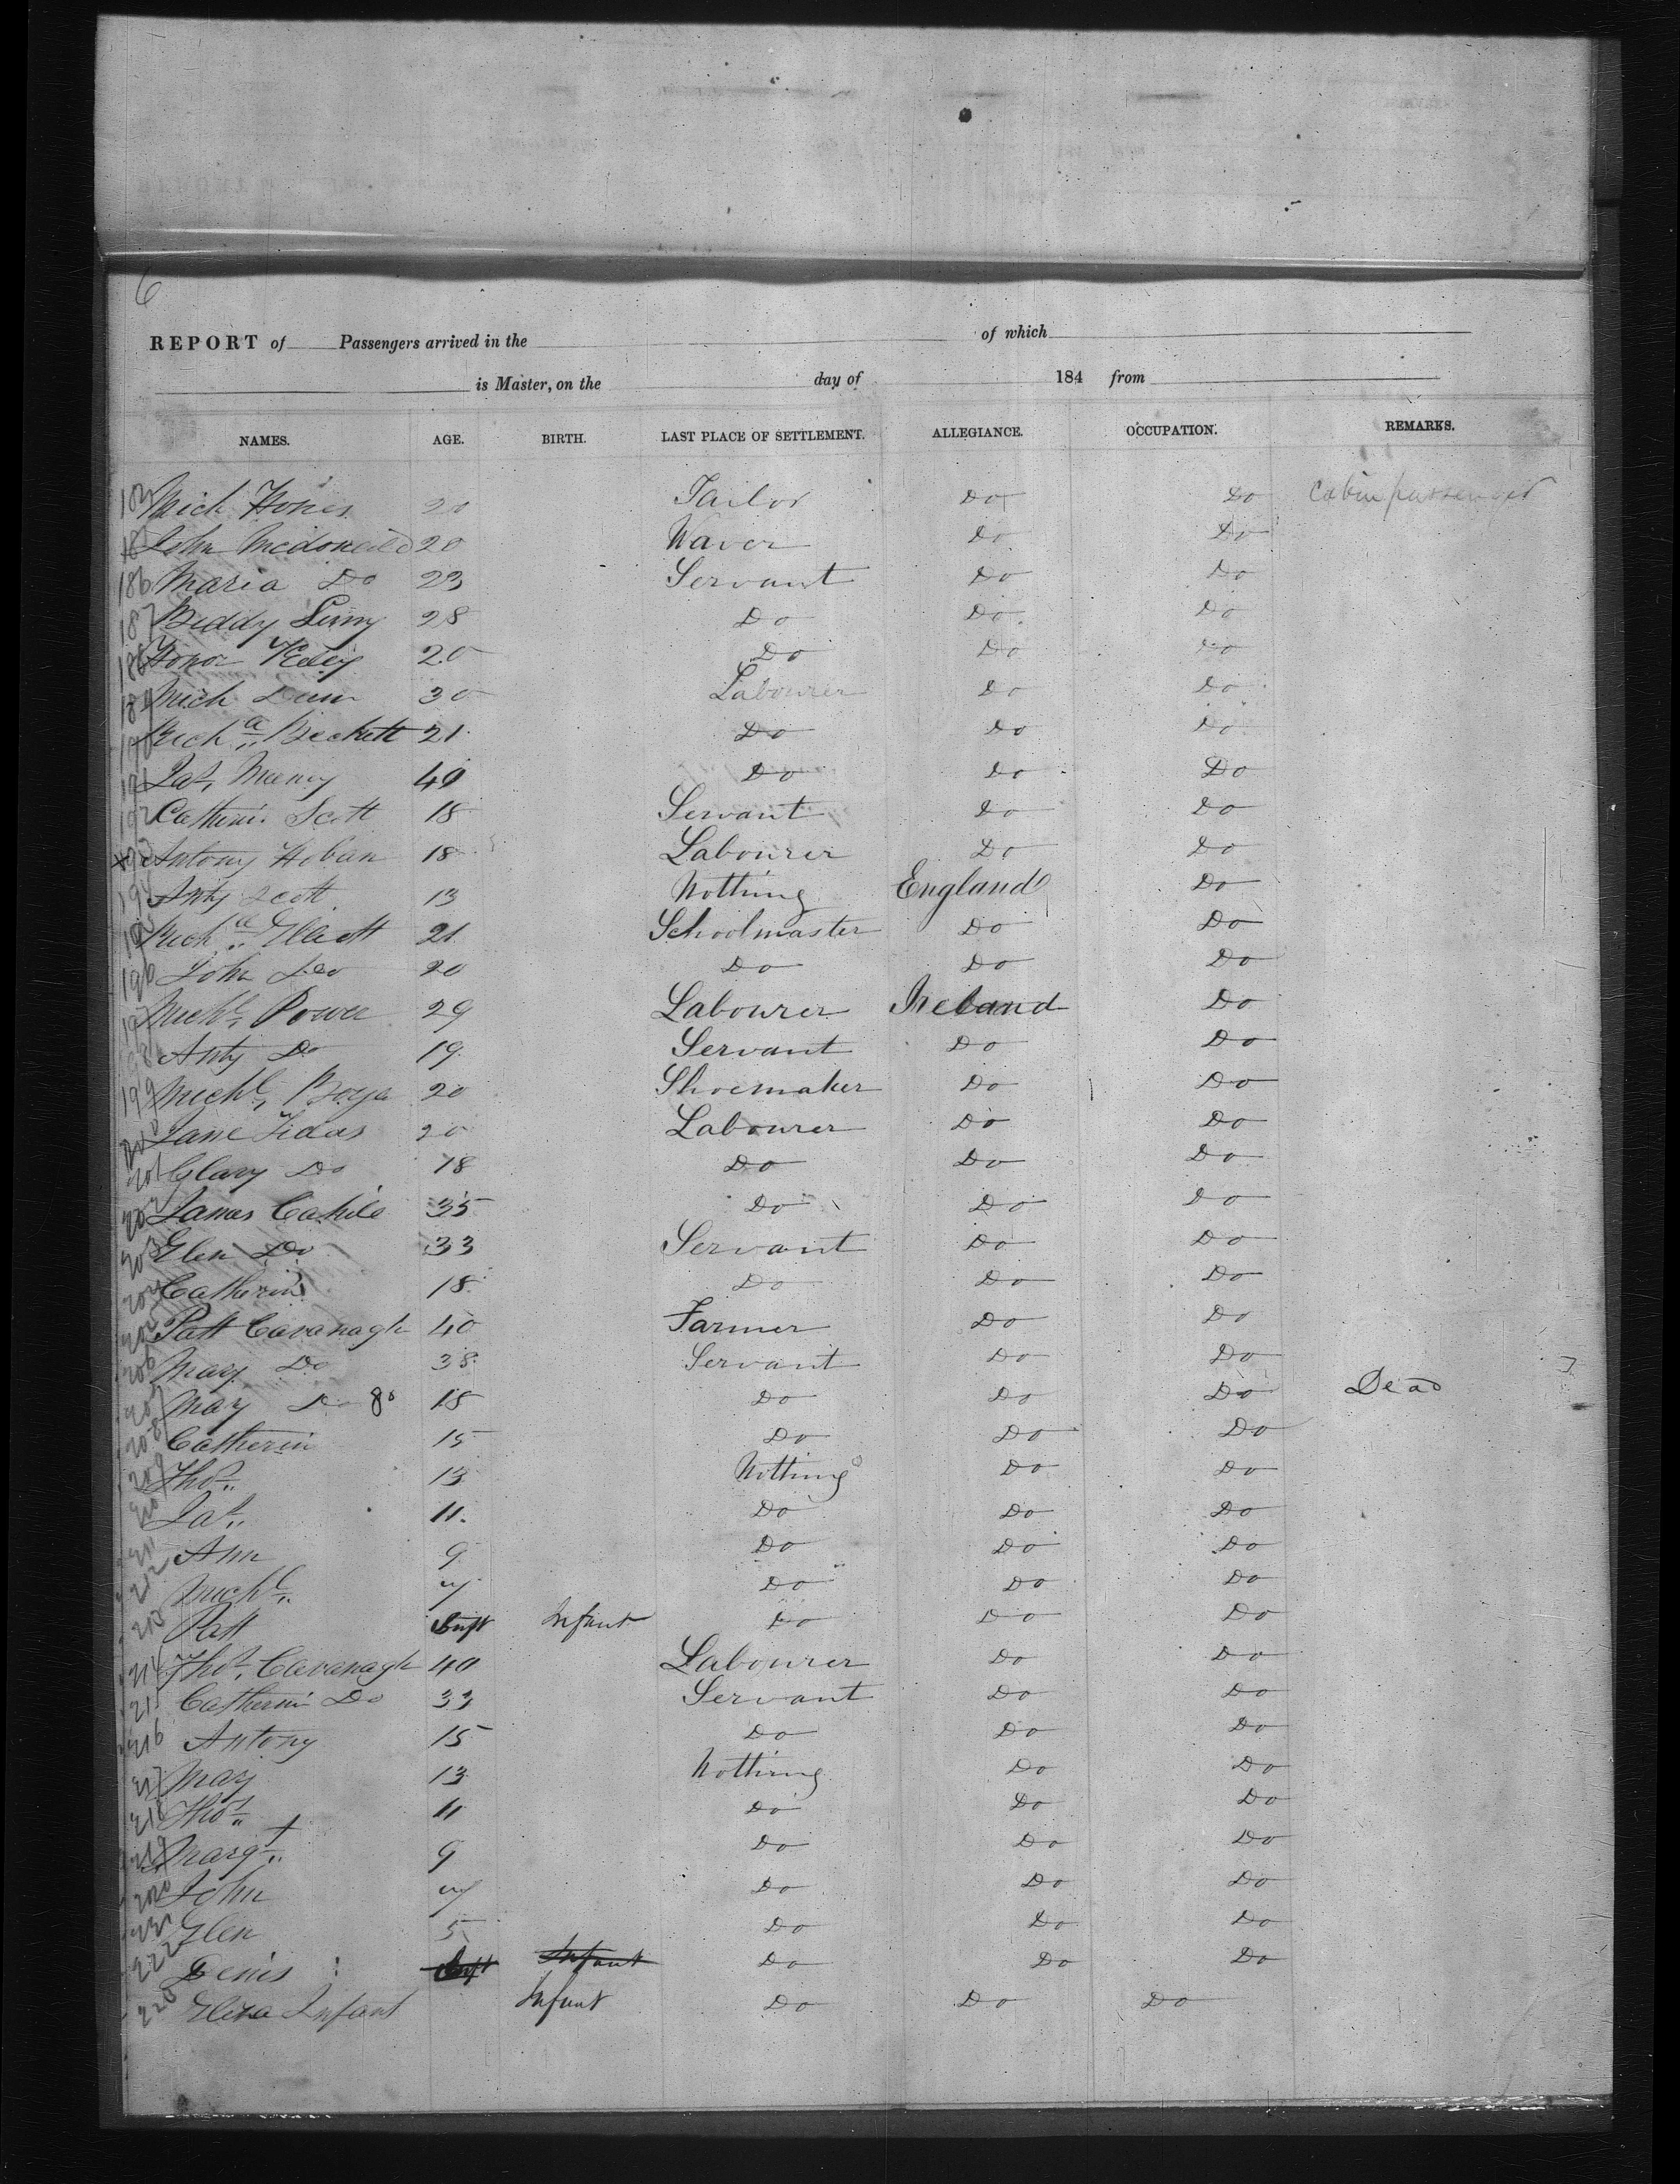 6
REPORT of Passengers arrived in the of which
is Master, on the day of 184 from
NAMES. AGE. BIRTH. LAST PLACE OF SETTLEMENT. ALLEGIANCE. OCCUPATION. REMARKS.
Mich 20 Tailor Do Do Cabin passenger
John 20 Waver Do Do
186 Maria Do 23 Servant Do Do
187 Biddy 28 Do Do Do
188 Honor 20 Do Do Do
189 Mich Dunn 30 Labourer Do Do
190 Rich.d Beckett 21 Do Do Do
191 Jas, 40 Do Do Do
192 Catherin Scott 18 Servant Do Do
193 Antony Hoban 18 Labourer Do Do
194 Anty Scott 13 Nothing England Do
195 Rich.d 21 Schoolmaster Do Do
196 John Do 20 Do Do Do
197 Michl. Power 29 Labourer Ireland Do
198 Anty Do 19 Servant Do Do
199 Michl, 20 Shoemaker Do Do
200 Jane 20 Labourer Do Do
201 Do 18 Do Do Do
202 James Cahile 35 Do Do Do
203 Elen Do 33 Servant Do Do
204 Catherin 18 Do Do Do
205 Patt Cavanagh 40 Farmer Do Do
206 Mary Do 38 Servant Do Do
207 Mary Do 80 18 Do Do Do Dead
208 Catherin 15 Do Do Do
209 Thos. 13 Nothing Do Do
210 Jas. 11. Do Do Do
211 Ann 9 Do Do Do
212 Michl. 7 Do Do Do
213 Patt Inft Infant Do Do Do
214 Thos, Cavanagh 40 Labourer Do Do
215 Catherin Do 33 Servant Do Do
216 Antony 15 Do Do Do
217 Mary 13 Nothing Do Do
218 Thos. 11 Do Do Do
219 Margt. 9 Do Do Do
220 John 7 Do Do Do
221 Elen 5 Do Do Do
222 Denis Inft Infant Do Do Do
223 Eliza Infant Infant Do Do Do